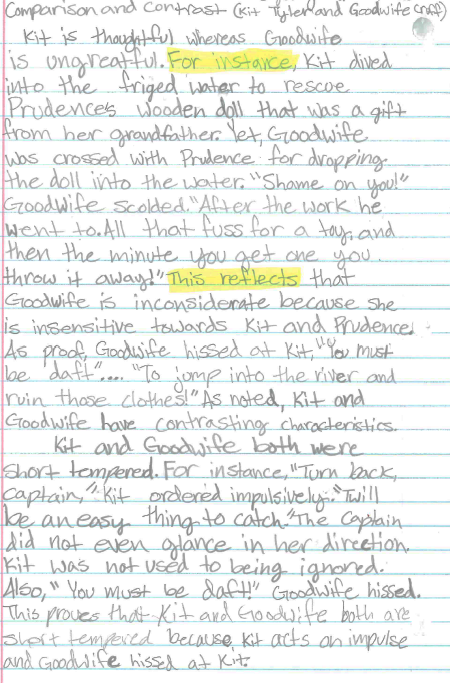 Comparison and Contrast (Kit Tyler and Goodwife Cruff)
Kit is thoughtful whereas Goodwife
is ungreatful. For instance, Kit dived
into the friged water to rescue
Prudence's wooden doll that was a gift
from her grandfather. Yet, Goodwife
was crossed with Prudence for dropping
the doll into the water. "Shame on you!"
Goodwife scolded. "After the work he
went to. All that fuss for a toy, and
then the minute you get one you
throw it away!" This reflects that
Goodwife is inconsiderate because she
is insensitive towards Kit and Prudence.
As proof, Goodwife hissed at Kit, "You must
be daft".... "To jump into the river and
ruin those clothes!" As noted, Kit and
Goodwife have contrasting characteristics.
Kit and Goodwife both were
short tempered. For instance, "Turn back,
Captain," Kit ordered impulsively. "Twill
be an easy thing to catch." The Captain
did not even glance in her direction.
Kit was not used to being ignored.
Also, "You must be daft!" Goodwife hissed.
This proves that Kit and Goodwife both are
short tempered because, Kit acts on impulse
and Goodwife hissed at Kit.